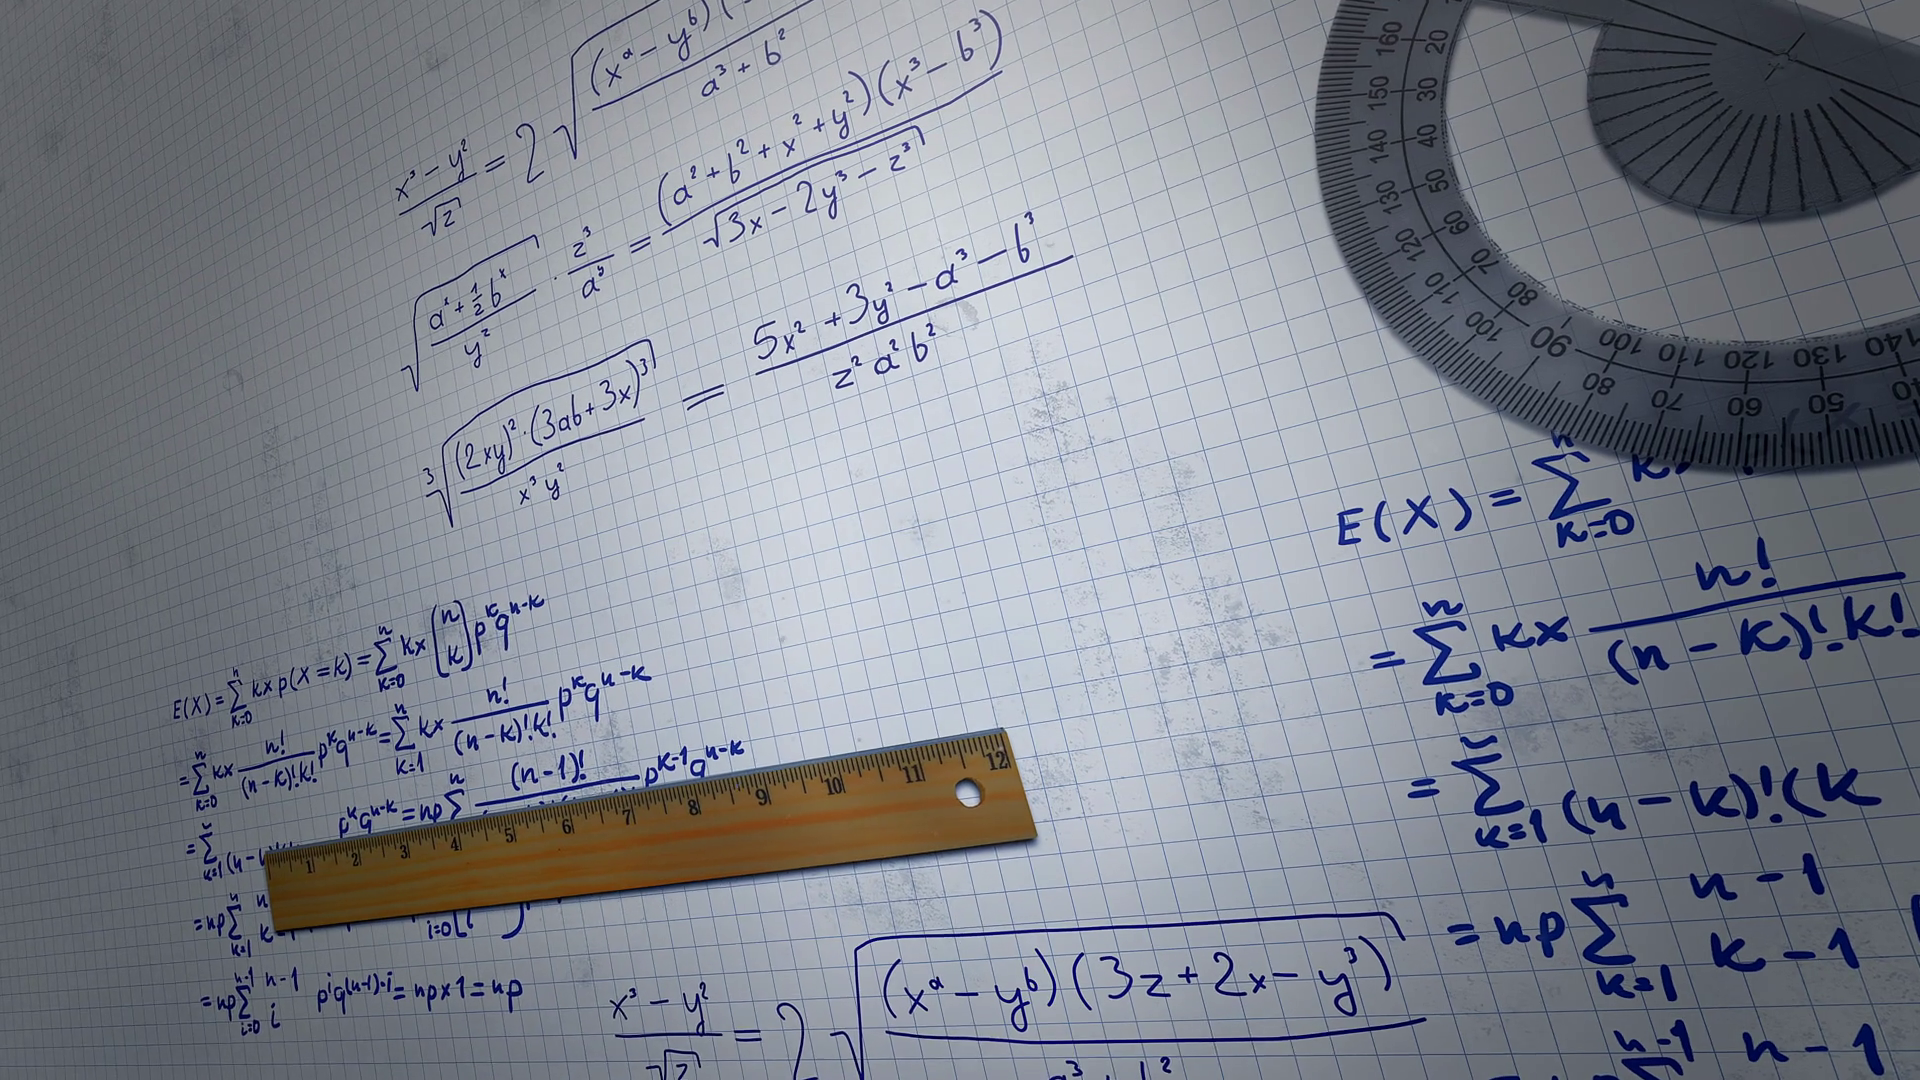 x³ - y² / √z = 2 √ (xᵃ - yᵇ)( / a³ + b²
√ a² + ½ bˣ / y² · z³ / a⁵ = (a² + b² + x² + y²)(x³ - b³) / √3x - 2y³ - z³
³√ (2xy)² · (3ab + 3x)³ / x³ y² = 5x² + 3y² - a³ - b³ / z² a² b²
E(X) = ∑ₖ₌₀ⁿ k× p(X = k) = ∑ₖ₌₀ⁿ k× (n k) pᵏqⁿ⁻ᵏ
= ∑ₖ₌₀ⁿ k× n! / (n-k)!k! pᵏqⁿ⁻ᵏ = ∑ₖ₌₁ⁿ k× n! / (n-k)!k! pᵏqⁿ⁻ᵏ
= ∑ₖ₌₁ⁿ (n- pᵏqⁿ⁻ᵏ = np ∑ⁿ (n-1)! pᵏ⁻¹qⁿ⁻ᵏ
= np ∑ₖ₌₁ⁿ i=0
= np ∑ᵢ₌₀ⁿ⁻¹ n-1 i pⁱq⁽ⁿ⁻¹⁾⁻ⁱ = np×1 = np
1 2 3 4 5 6 7 8 9 10 11 12
x³ - y² / √z = 2 √ (xᵃ - yᵇ)(3z + 2x - y³)
160 150 140 130 120 110 100 90 80 70 60 50 40
20 30 40 50 60 70 80 90 100 110 120 130 140
E(X) = ∑ₖ₌₀ⁿ k
= ∑ₖ₌₀ⁿ k× n! / (n-k)!k!
= ∑ₖ₌₁ⁿ (n-k)!(k
= np ∑ₖ₌₁ⁿ n-1 k-1
n-1 n-1